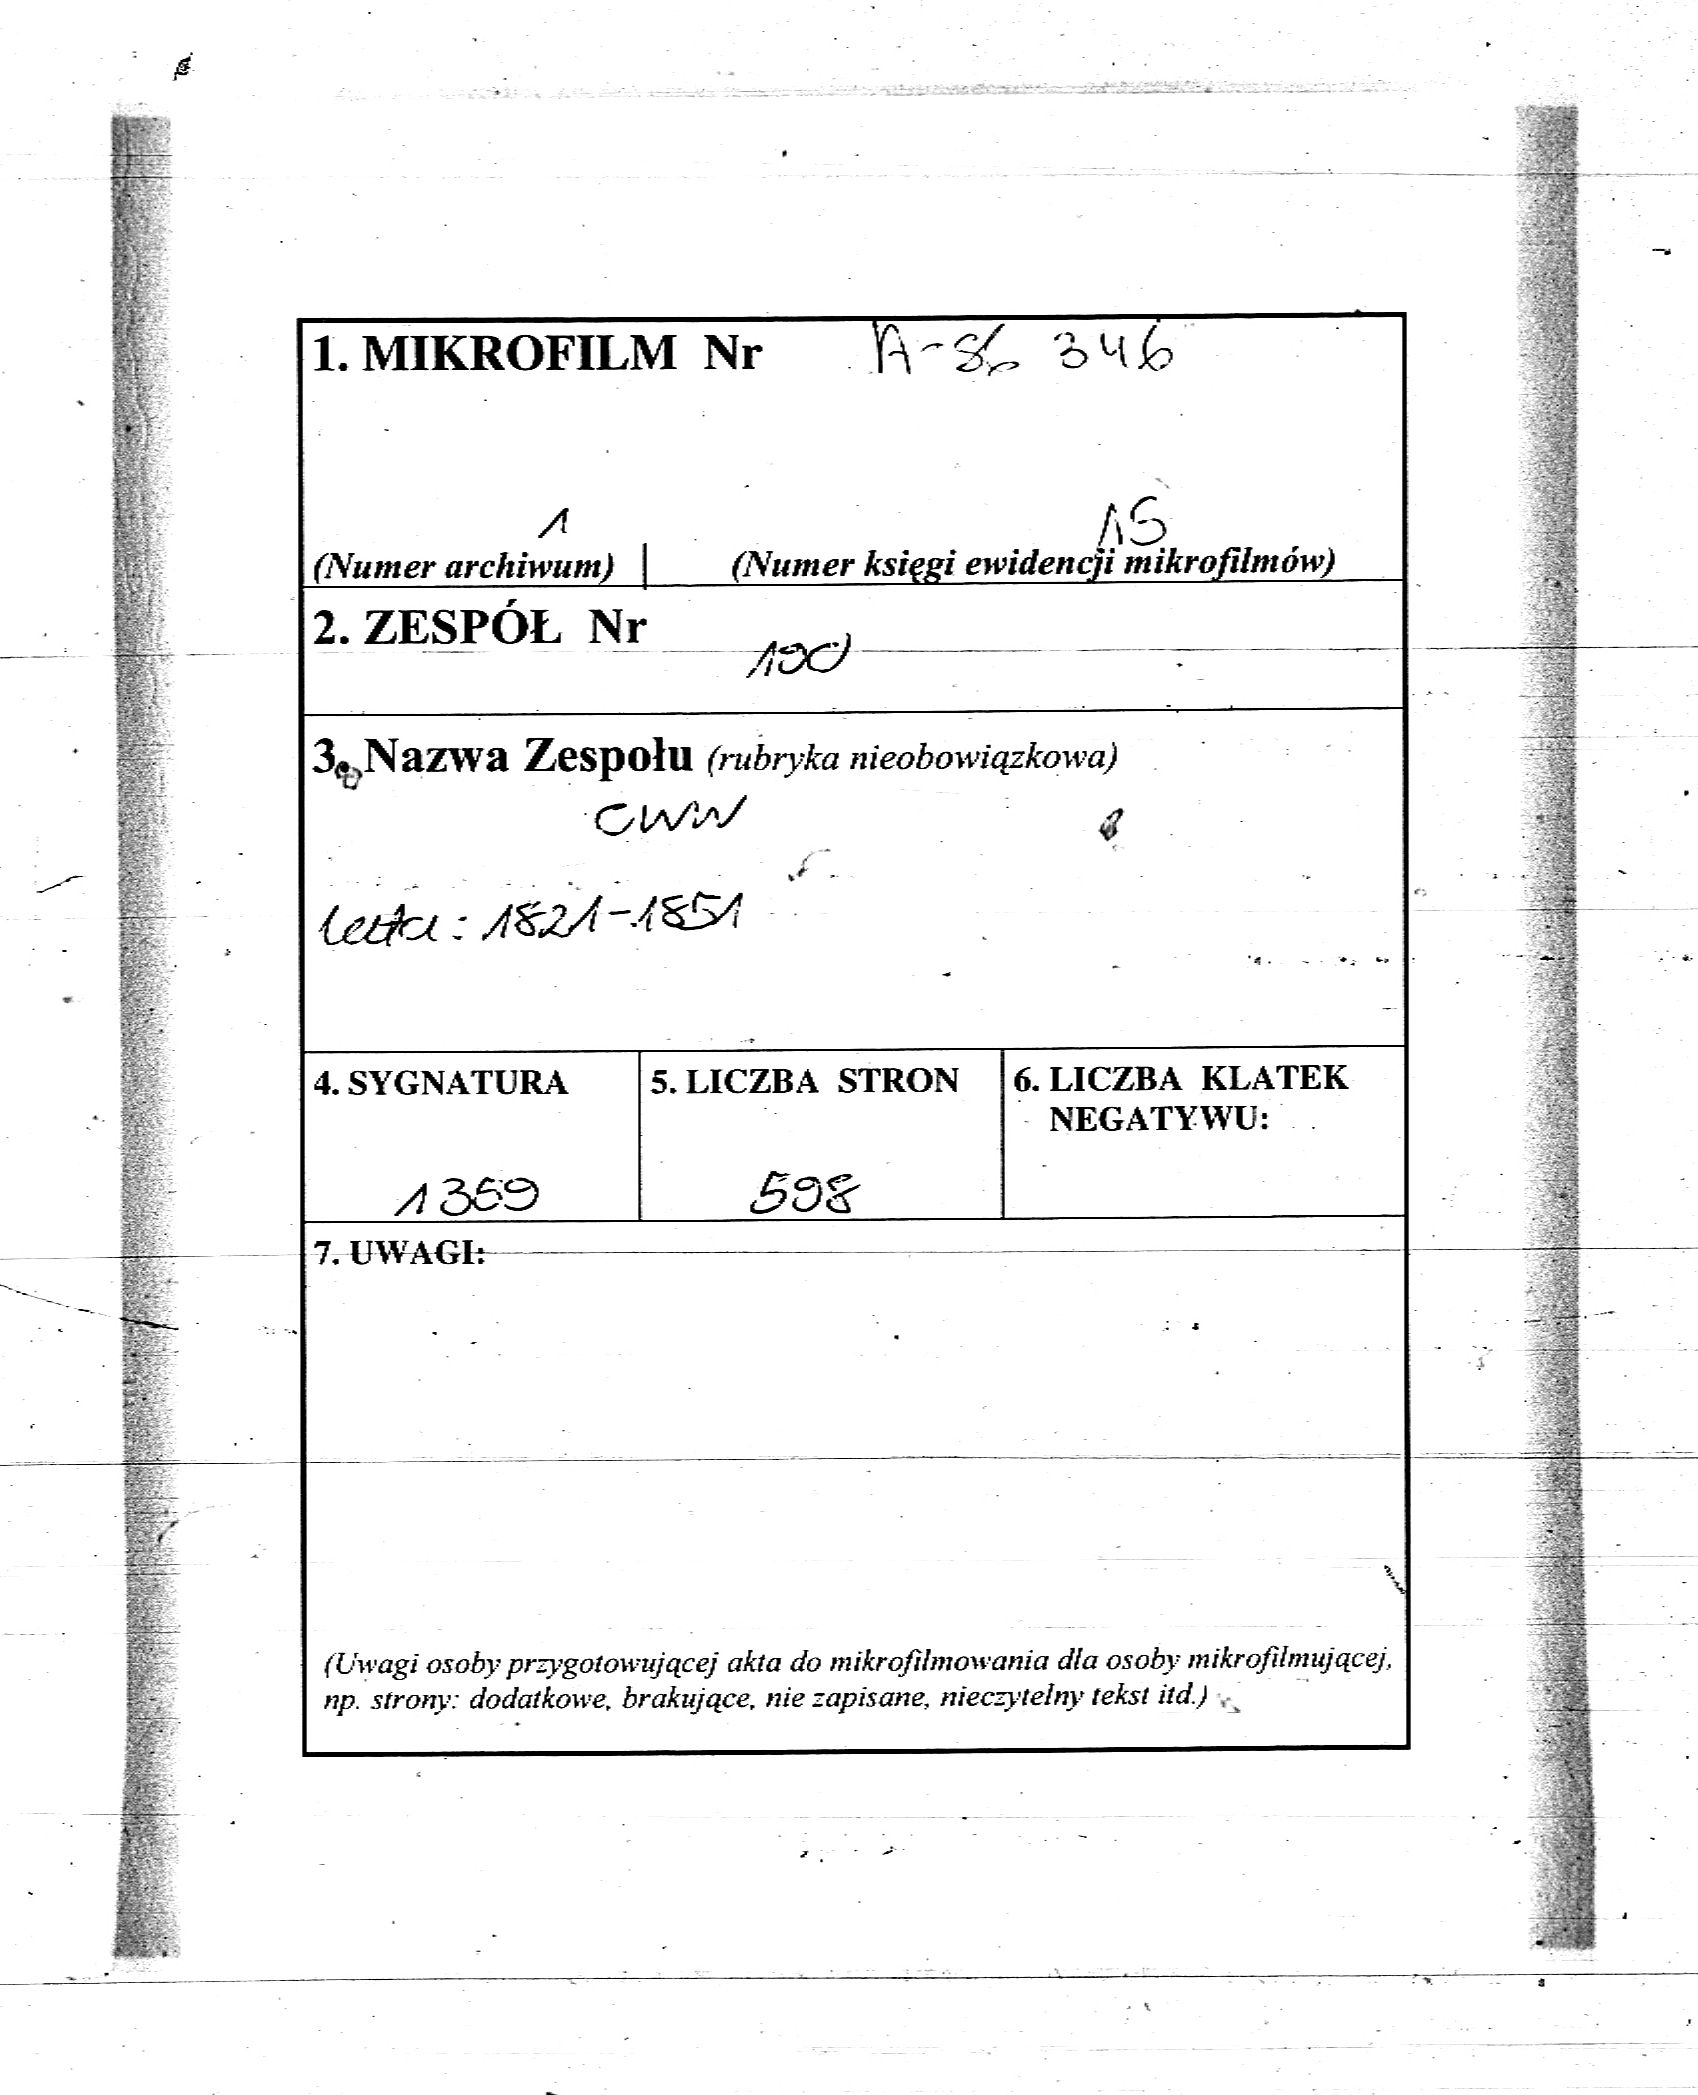 1. MIKROFILM Nr A-86 346
1 15
(Numer archiwum) (Numer księgi ewidencji mikrofilmów)
2. ZESPÓŁ Nr
190
3. Nazwa Zespołu (rubryka nieobowiązkowa)
CWW
lata: 1821-1851
4. SYGNATURA 5. LICZBA STRON 6. LICZBA KLATEK
NEGATYWU:
1369 598
7. UWAGI:
(Uwagi osoby przygotowującej akta do mikrofilmowania dla osoby mikrofilmującej,
np. strony: dodatkowe, brakujące, nie zapisane, nieczytelny tekst itd.)